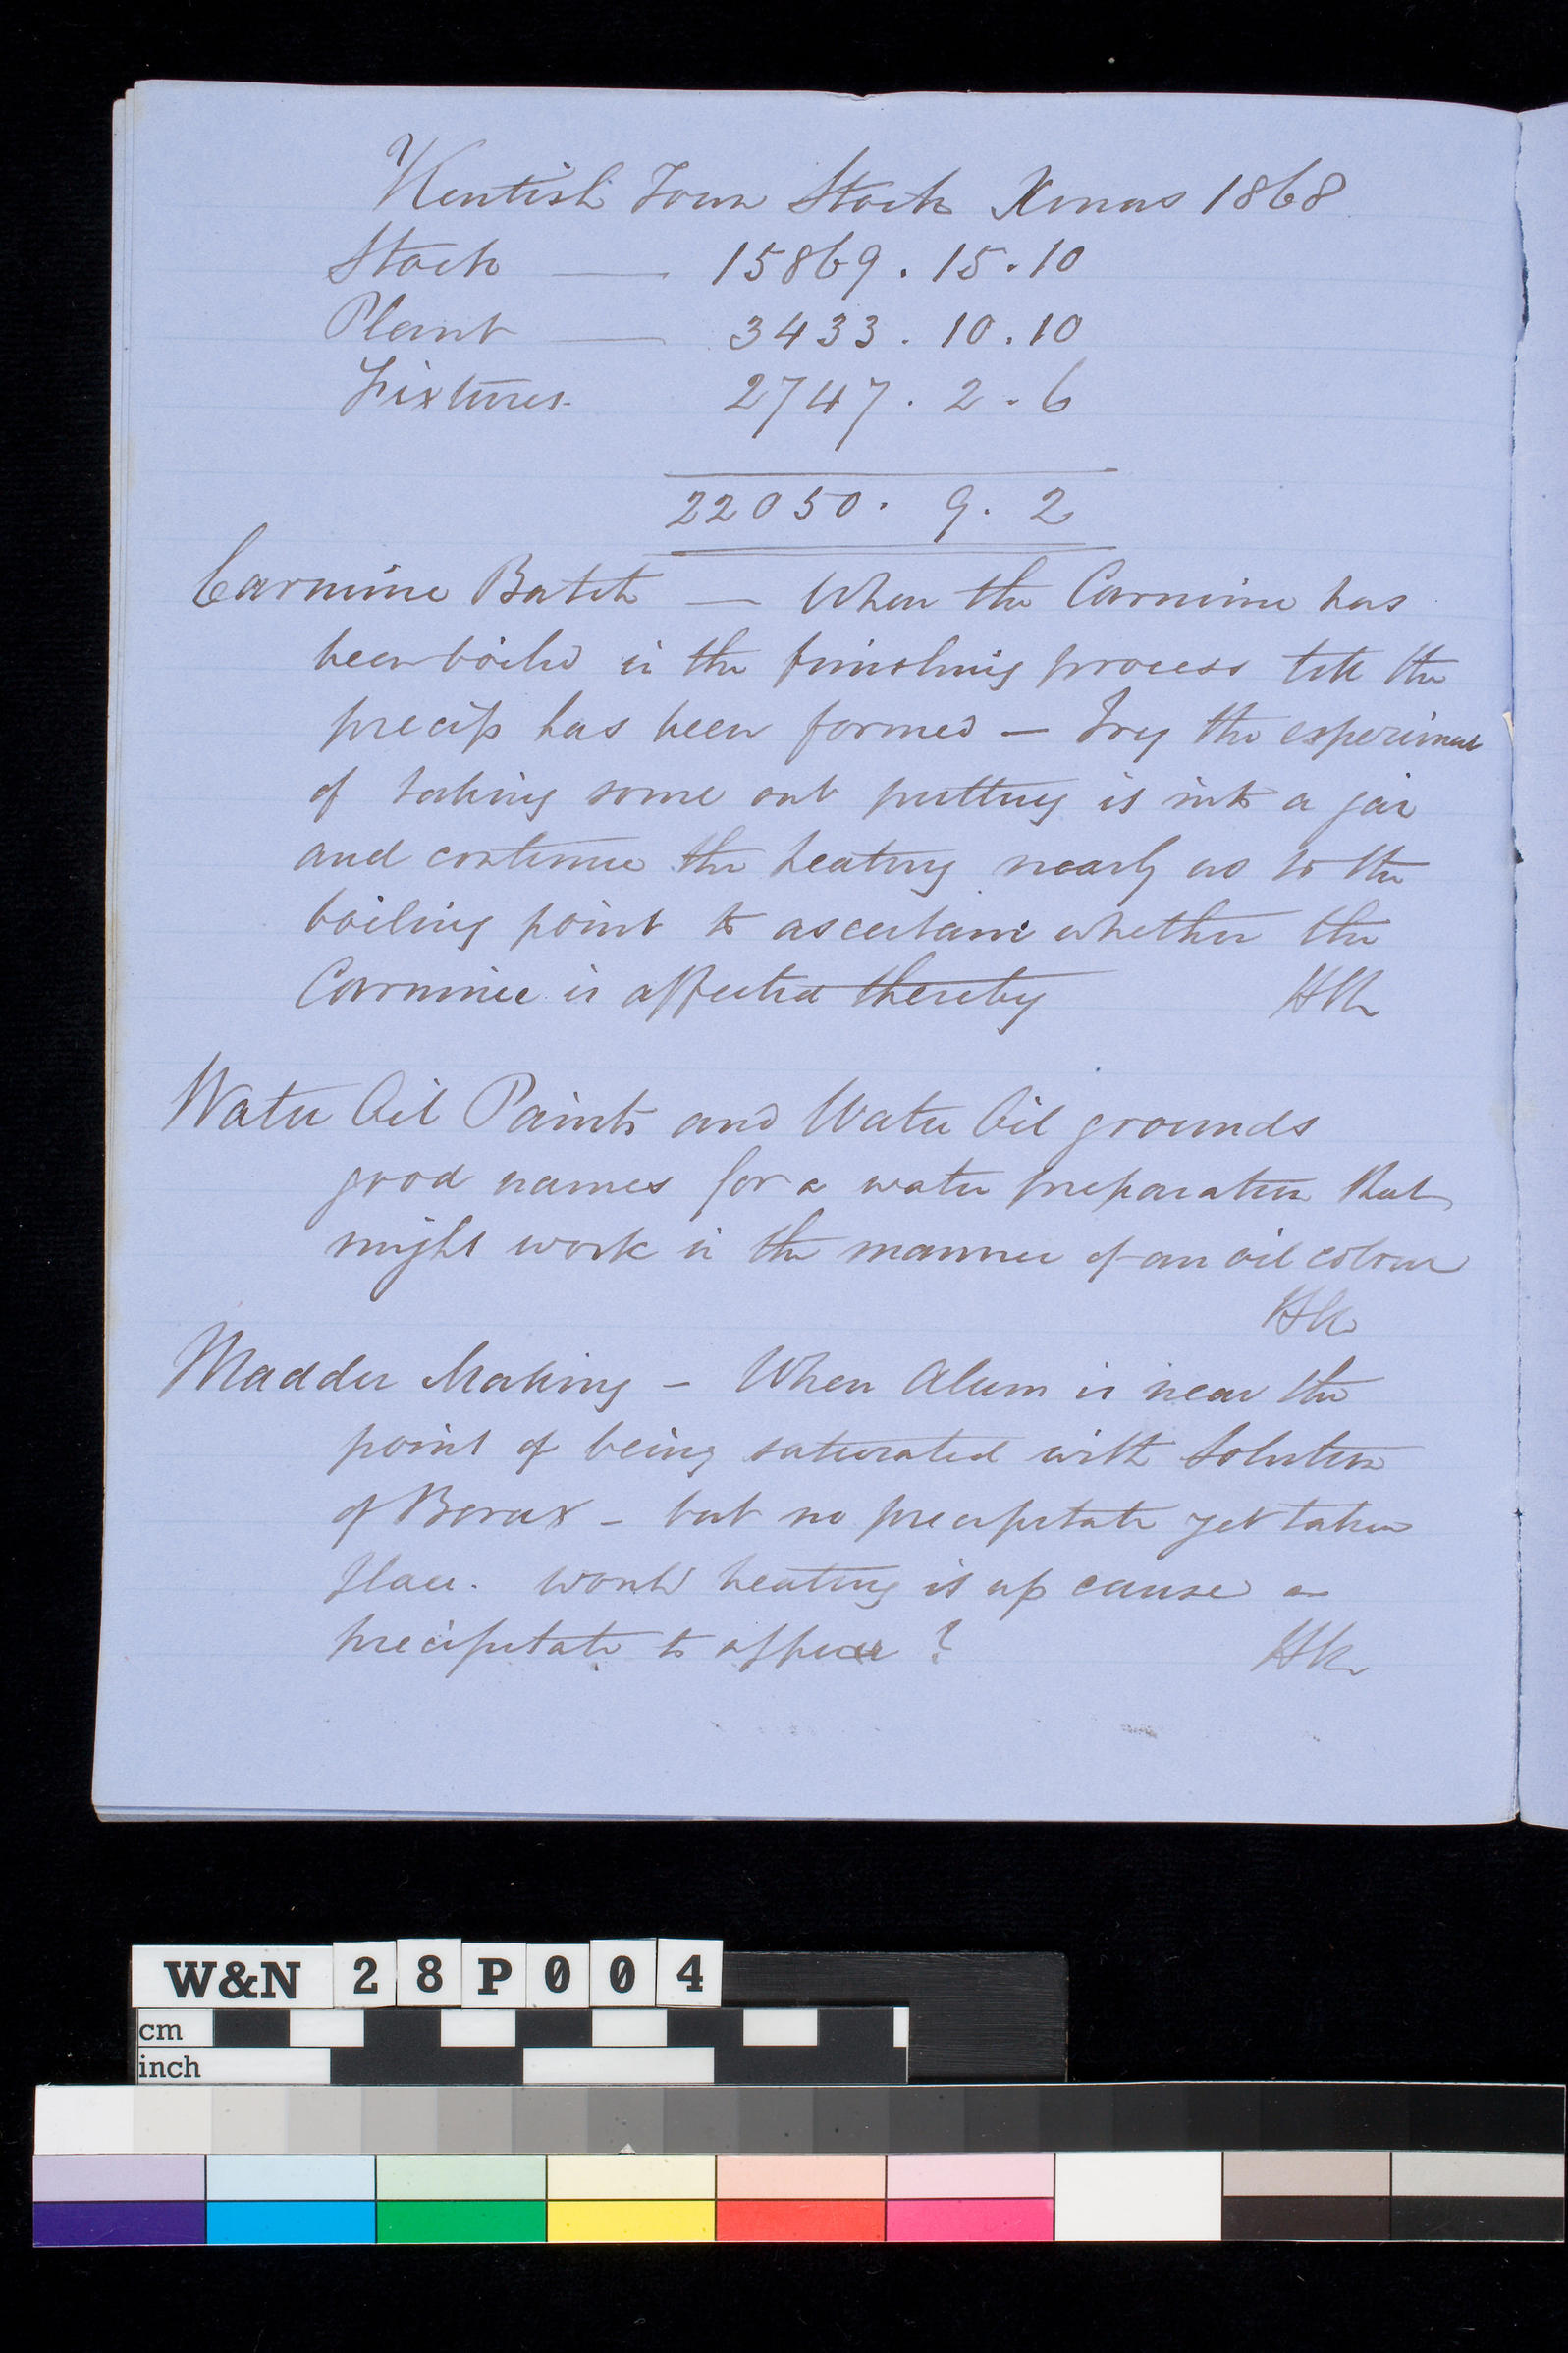 Kentish Town Stock Xmas 1868
Stock — 15869 . 15 . 10
Plant — 3433 . 10 . 10
Fixtures 2747 . 2 . 6
22050 . 9 . 2
Carmine Batch — When the Carmine has
been boiled in the finishing process till the
precip has been formed — Try the experiment
of taking some out putting it into a jar
and continue the heating nearly up to the
boiling point to ascertain whether the
Carmine is affected thereby HK
Water Oil Paints and Water Oil grounds
good names for a water preparation that
might work in the manner of an oil colour
HK
Madder Making – When Alum is near the
point of being saturated with Solution
of Borax – but no precipitate yet taken
place. would heating it up cause a
precipitate to appear ? HK
W&N 28P004
cm
inch